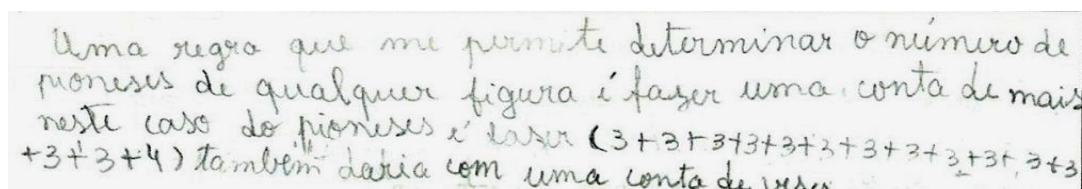 Uma regra que me permite determinar o número de
pioneses de qualquer figura é fazer uma conta de mais
neste caso do pioneses é (3+3+3+3+3+3+3+3+3+3+3+3
+3+3+4) também daria com uma conta de vezes